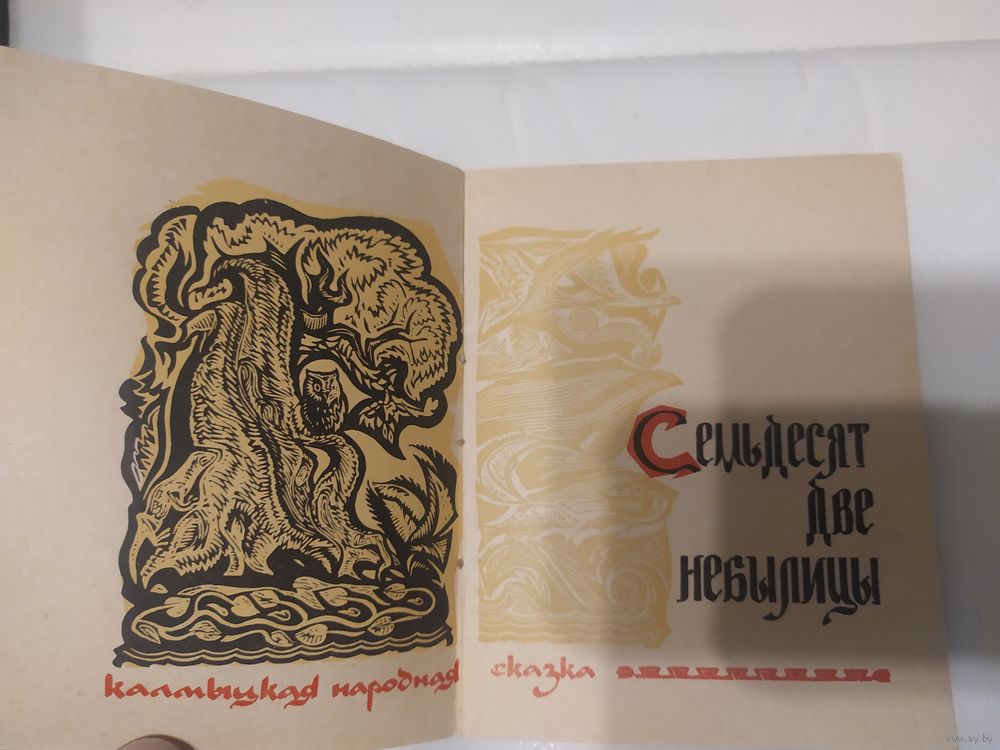 Семьдесят
две
небылицы
калмыцкая народная сказка
www.ay.by